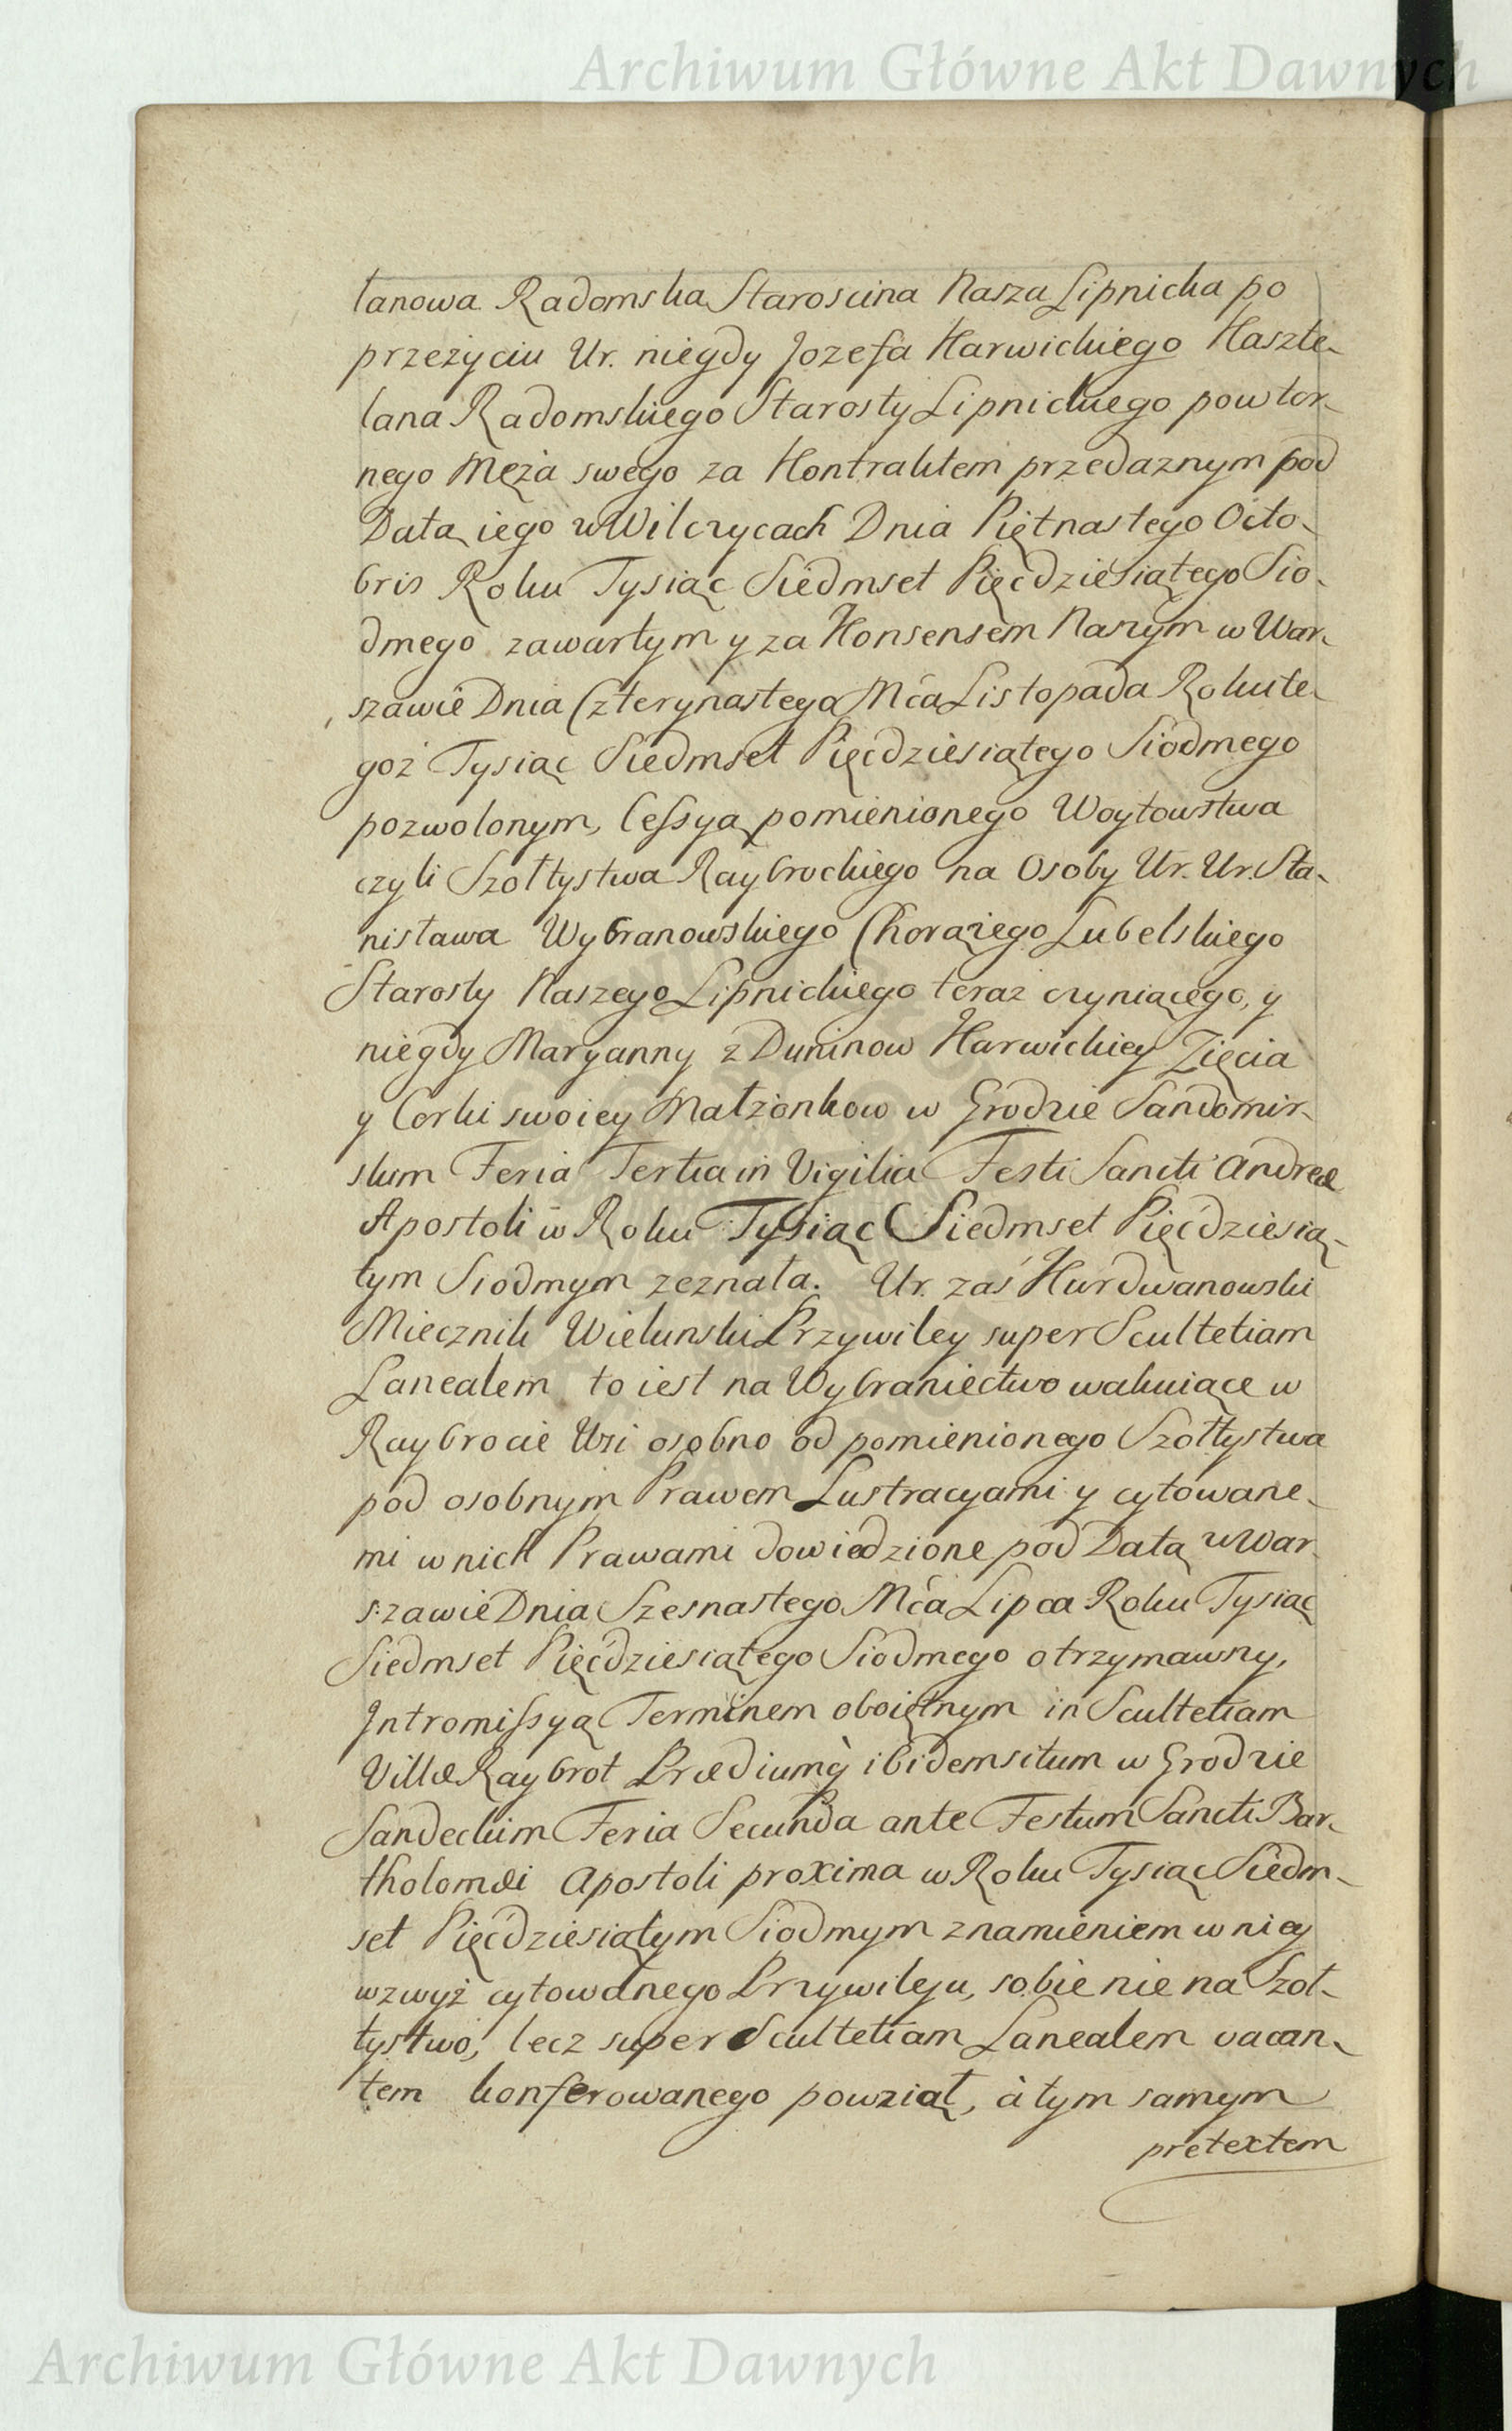 Archiwum Główne Akt Dawnych
lanowa Radomska Staroscina Nasza Lipnicka po
przeżyciu Ur. niegdy Jozefa Karwickiego Kaszte-
lana Radomskiego Starosty Lipnickiego powtor-
nego Męża swego za Kontraktem przedaznym pod
Datą iego w Wilczycach Dnia Piętnastego Octo-
bris Roku Tysiąc Siedmset Pięćdziesiątego Sio-
dmego zawartym y za Konsensem Naszym w War-
szawie Dnia Czterynastego Mca Listopada Roku te-
goż Tysiąc Siedmset Pięcdziesiątego Siodmego
pozwolonym, Cessyą pomienionego Woytowstwa
czyli Szołtystwa Raybrockiego na Osoby Ur. Ur. Sta-
nisława Wybranowskiego Chorążego Lubelskiego
Starosty Naszego Lipnickiego teraz czyniącego, y
niegdy Maryanny z Duninow Karwickiey Zięcia
y Corki swoiey Małżonkow w Grodzie Sandomir-
skim Feria Tertia in Vigilia Festi Sancti Andreæ
Apostoli w Roku Tysiąc Siedmset Pięćdziesią-
tym Siodmym zeznała. Ur. zaś Kurdwanowski
Miecznik Wielunski Przywiley super Scultetiam
Lanealem to iest na Wybraniectwo wakuiące w
Raybrocie Wsi osobno od pomienionego Szołtystwa
pod osobnym Prawem Lustracyami y cytowane-
mi w nich Prawami dowiedzione pod Datą w War-
szawie Dnia Szesnastego Mca Lipca Roku Tysiąc
Siedmset Pięćdziesiątego Siodmego otrzymawszy,
Intromissyą Terminem oboiętnym in Scultetiam
Villæ Raybrot Prædiumq̀ ibidem situm w Grodzie
Sandeckim Feria Secunda ante Festum Sancti Bar-
tholomæi Apostoli proxima w Roku Tysiąc Siedm-
set Pięćdziesiątym Siodmym znamieniem w niey
wzwyż cytowanego Przywileju, sobie nie na Szoł-
tystwo, lecz super Scultetiam Lanealem vacan-
tem konferowanego powziął, à tym samym
pretextem
Archiwum Główne Akt Dawnych